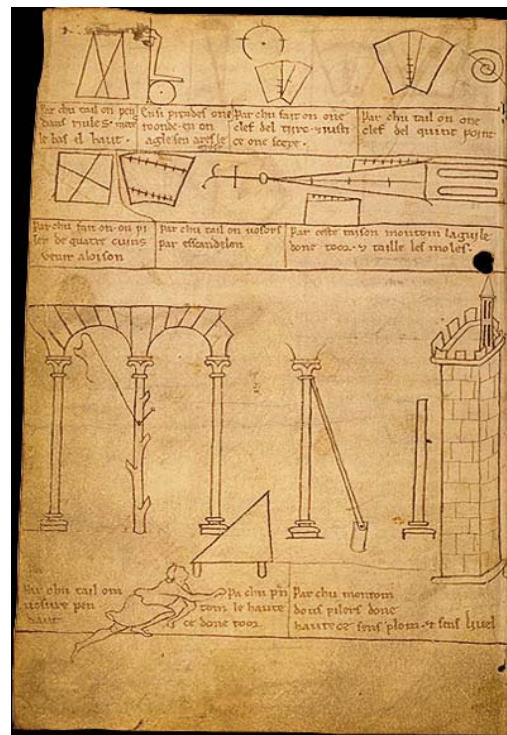 Par chu tail on pen
dans riules. mete
le bas el haut.
Ensi prendes one
roonde en on
agle sen ares le
Par chu fait on one
clef del tirc. & iusti
ce one scere.
Par chu tail on one
clef del quint point
Par chu fait on on pi
ler de quatre cuins
venir aloison
Par chu tail on vosors
par escandelon
Par ceste raison montom laguile
done toor. & taille les moles.
Par chu tail om
vosure pen
dant
Pa chu prent
tom le haute
ce done toor
Par chu montom
dous pilers done
hautece sens plom. & sens livel